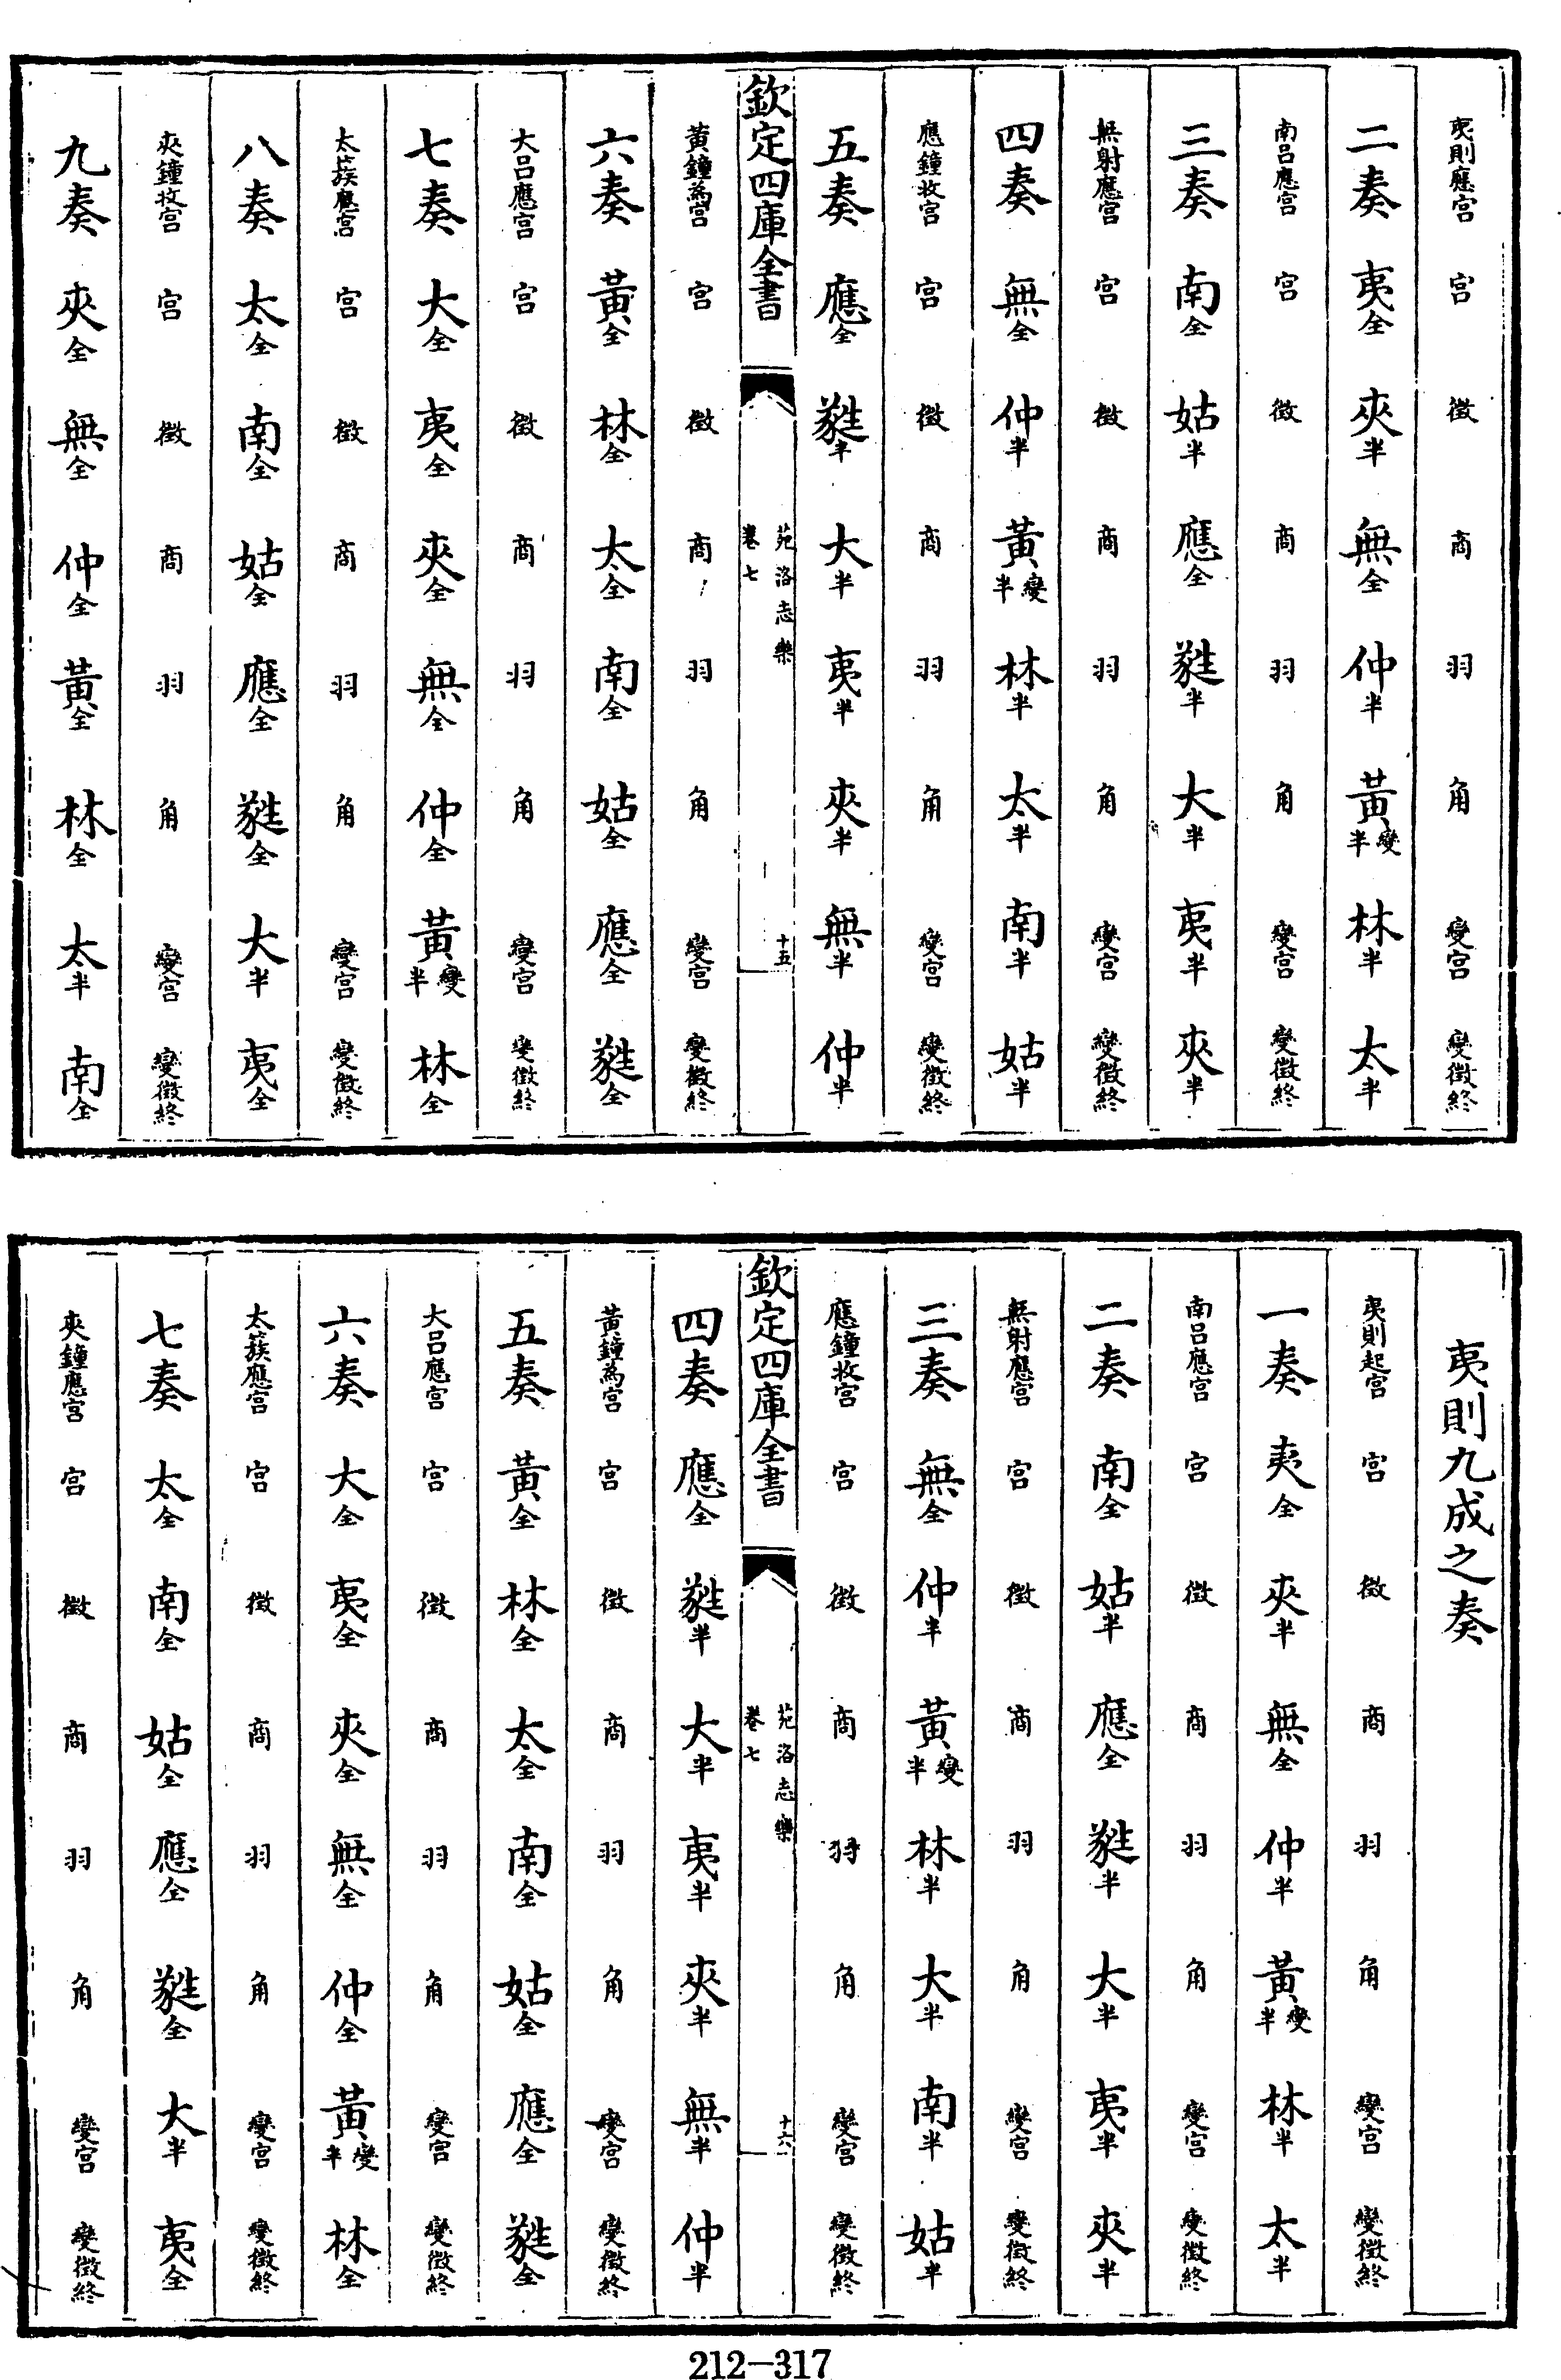 夷則應宮 宮 徵 商 羽 角 變宮 變徵終
二奏 夷全 夾半 無全 仲半 黃變半 林半 太半
南呂應宮 宮 徵 商 羽 角 變宮 變徵終
三奏 南全 姑半 應全 蕤半 大半 夷半 夾半
無射應宮 宮 徵 商 羽 角 變宮 變徵終
四奏 無全 仲半 黃變半 林半 太半 南半 姑半
應鐘收宮 宮 徵 商 羽 角 變宮 變徵終
五奏 應全 蕤半 大半 夷半 夾半 無半 仲半
欽定四庫全書 苑洛志樂 卷七 十五
黃鐘為宮 宮 徵 商 羽 角 變宮 變徵終
六奏 黃全 林全 太全 南全 姑全 應全 蕤全
大呂應宮 宮 徵 商 羽 角 變宮 變徵終
七奏 大全 夷全 夾全 無全 仲全 黃變半 林全
太簇應宮 宮 徵 商 羽 角 變宮 變徵終
八奏 太全 南全 姑全 應全 蕤全 大半 夷全
夾鐘收宮 宮 徵 商 羽 角 變宮 變徵終
九奏 夾全 無全 仲全 黃全 林全 太半 南全
夷則九成之奏
夷則起宮 宮 徵 商 羽 角 變宮 變徵終
一奏 夷全 夾半 無全 仲半 黃變半 林半 太半
南呂應宮 宮 徵 商 羽 角 變宮 變徵終
二奏 南全 姑半 應全 蕤半 大半 夷半 夾半
無射應宮 宮 徵 商 羽 角 變宮 變徵終
三奏 無全 仲半 黃變半 林半 大半 南半 姑半
應鐘收宮 宮 徵 商 羽 角 變宮 變徵終
欽定四庫全書 苑洛志樂 卷七 十六
四奏 應全 蕤半 大半 夷半 夾半 無半 仲半
黃鐘為宮 宮 徵 商 羽 角 變宮 變徵終
五奏 黃全 林全 太全 南全 姑全 應全 蕤全
大呂應宮 宮 徵 商 羽 角 變宮 變徵終
六奏 大全 夷全 夾全 無全 仲全 黃變半 林全
太簇應宮 宮 徵 商 羽 角 變宮 變徵終
七奏 太全 南全 姑全 應全 蕤全 大半 夷全
夾鐘應宮 宮 徵 商 羽 角 變宮 變徵終
212-317